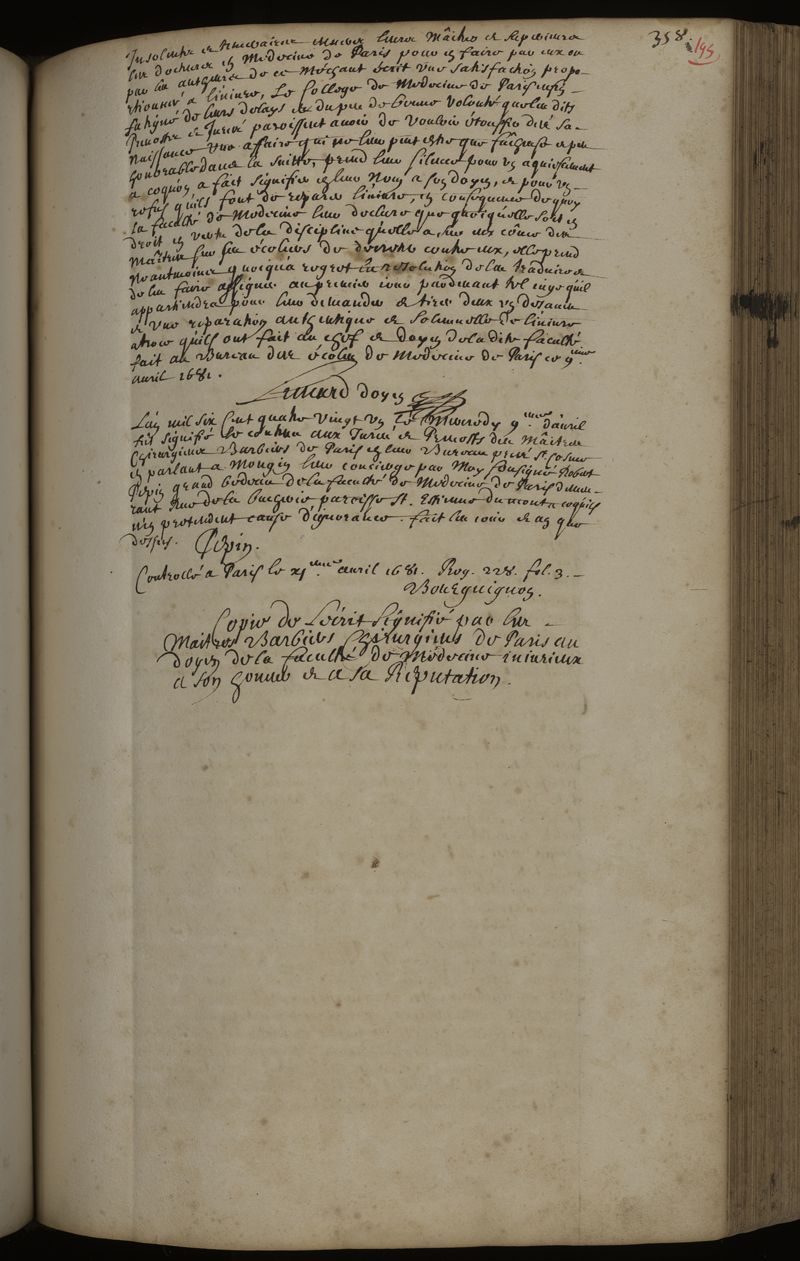 358. 195
Insolente et temeraire envers leurs Maîtres et superieurs
les docteurs en Medecine de Paris pour en faire par eux ou
par les autheurs de ce Meschant écrit une satisfaction propo-
rtionneé a l'iniure, Le College de Medecine de Paris
fatigué de leurs delays et du peu de bonne volonté que lesdits
Prevosts et Jurés paroissent avoir de vouloir étouffer dès sa
naissance une affaire qui ne leur peut estre que fascheuse et peu
honorable dans la suitte, prend leur silence pour un aquiescement
a ce qu'on a fait signifier en leur nom a son doyen, et pour un
refus qu'ils font de reparer l'iniure, en consequence de quoy
la faculté de Medecine leur declare que quoiqu'elle soit en
droit en vertu de la discipline qu'elle a sur eux comme des
Maîtres sur ses écoliers de contre eux, elle prend
neantmoins quoiqu'a regret la resolution de les traduire et
de les faire assigner au premier iour pardevant tel iuge qu'il
appartiendra pour leur demander et tirer d'eux un desaveu
et une reparation authentique et solemnelle de l'iniure
atroce qu'ils ont fait au chef et doyen de ladite faculté
fait au Bureau des écoles de Medecine de Paris ce 9.me
avril 1681.
Lienard doyen
L'an mil six cent quatre vingt un le Mercredy 9.me d'avril
fut signifié le contenu aux Jurés et Prevosts des Maîtres
Chirurgiens Barbiers de Paris en leur Bureau pres St. Cosme
en parlant a Mongin leur concierge par Moy soussigné Robert
Pepin grand bedeau de la faculté de Medecine de Paris demeu-
rant rue de la bucherie paroisse St. Estienne du mont a ce qu'ils
n'en pretendent cause d'ignorance. fait les iour et an que
dessus. Pepin.
Controllé a Paris le xj.me avril 1681. Reg. 228. fol. 3.
Bourguignon.
Copie de l'écrit signifié par les
Maitres Barbiers Chirurgiens de Paris au
doyen de la faculté de Medecine iniurieux
a son honneur et a sa Reputation.